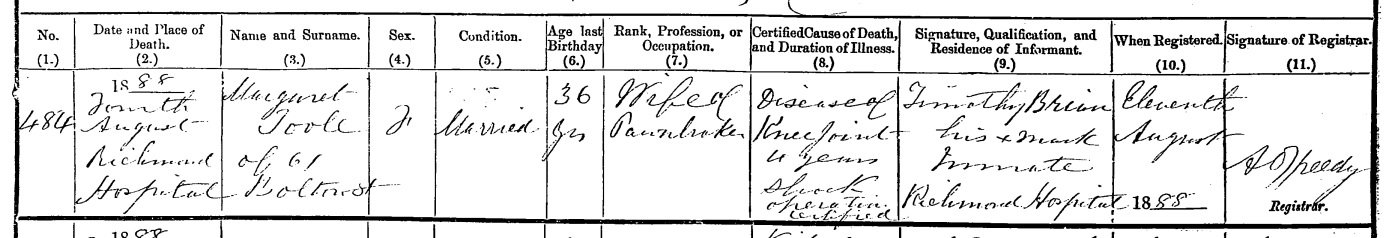 No.
(1.)
Date and Place of
Death.
(2.)
Name and Surname.
(3.)
Sex.
(4.)
Condition.
(5.)
Age last
Birthday
(6.)
Rank, Profession, or
Occupation.
(7.)
Certified Cause of Death,
and Duration of Illness.
(8.)
Signature, Qualification, and
Residence of Informant.
(9.)
When Registered.
(10.)
Signature of Registrar.
(11.)
484
1888
Fourth
August
Richmond
Hospital
Margaret
Toole
of 61
Bolton st
F
Married
36
yrs
Wife of
Pawnbroker
Disease of
Knee Joint
4 years
Shock
operation
certified
Timothy Brian
his x mark
Inmate
Richmond Hospital
Eleventh
August
1888
A Speedy
Registrar.
1888